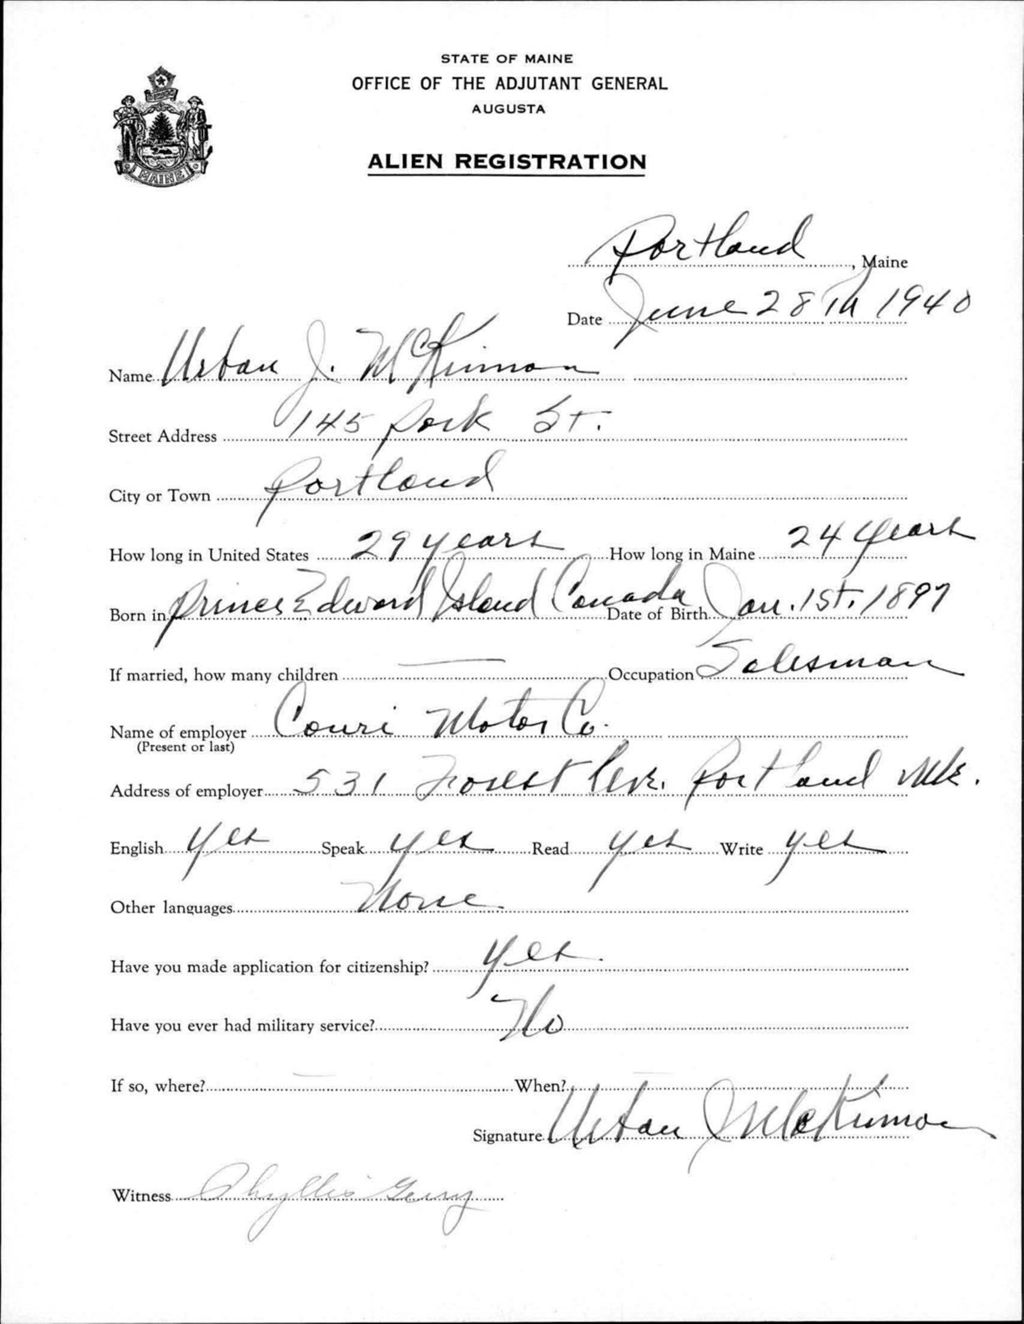 STATE OF MAINE
OFFICE OF THE ADJUTANT GENERAL
AUGUSTA
ALIEN REGISTRATION
MAINE
Portland, Maine
Date June 28th 1940
Name Urban J. McKinnon
Street Address 145 Park St.
City or Town Portland
How long in United States 29 years How long in Maine 24 years
Born in Prince Edward Island Canada Date of Birth Jan. 1st. 1897
If married, how many children — Occupation Salesman
Name of employer Couri Motor Co.
(Present or last)
Address of employer 531 Forest Ave. Portland Me.
English Yes Speak yes Read yes Write yes
Other languages None.
Have you made application for citizenship? Yes.
Have you ever had military service? No
If so, where? — When?
Signature Urban J McKinnon
Witness Phyllis Geary